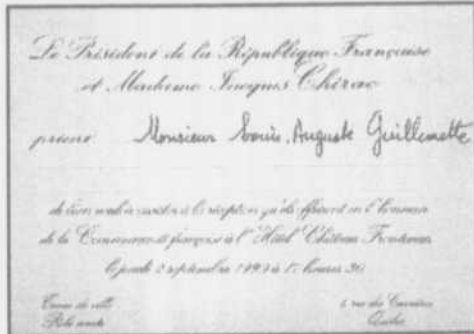 Le Président de la République Française
et Madame Jacques Chirac
prient Monsieur Louis-Auguste Guillemette
de bien vouloir assister à la réception qu'ils offriront en l'honneur
de la Communauté française à l'Hôtel Château Frontenac
le jeudi 2 septembre 1999 à 17 heures 30
Tenue de ville
1, rue des Carrières
Québec